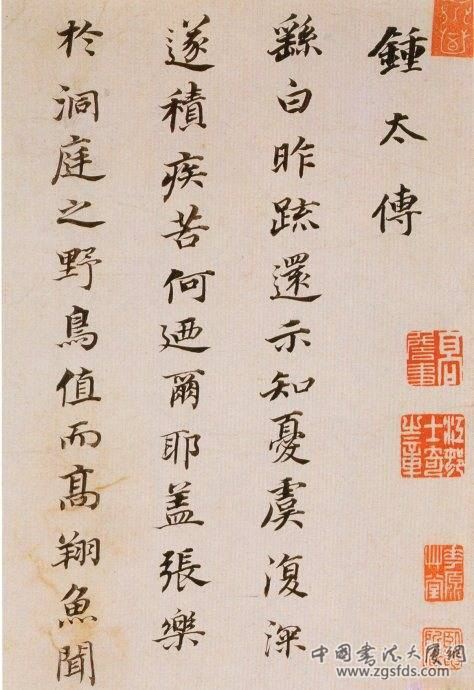 鍾太傅
繇白昨疏還示知憂虞復深
遂積疾苦何迺爾耶盖張樂
於洞庭之野鳥值而高翔魚聞
中國書法大展網
www.zgsfds.com